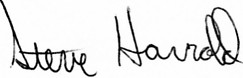 Steve Harrold